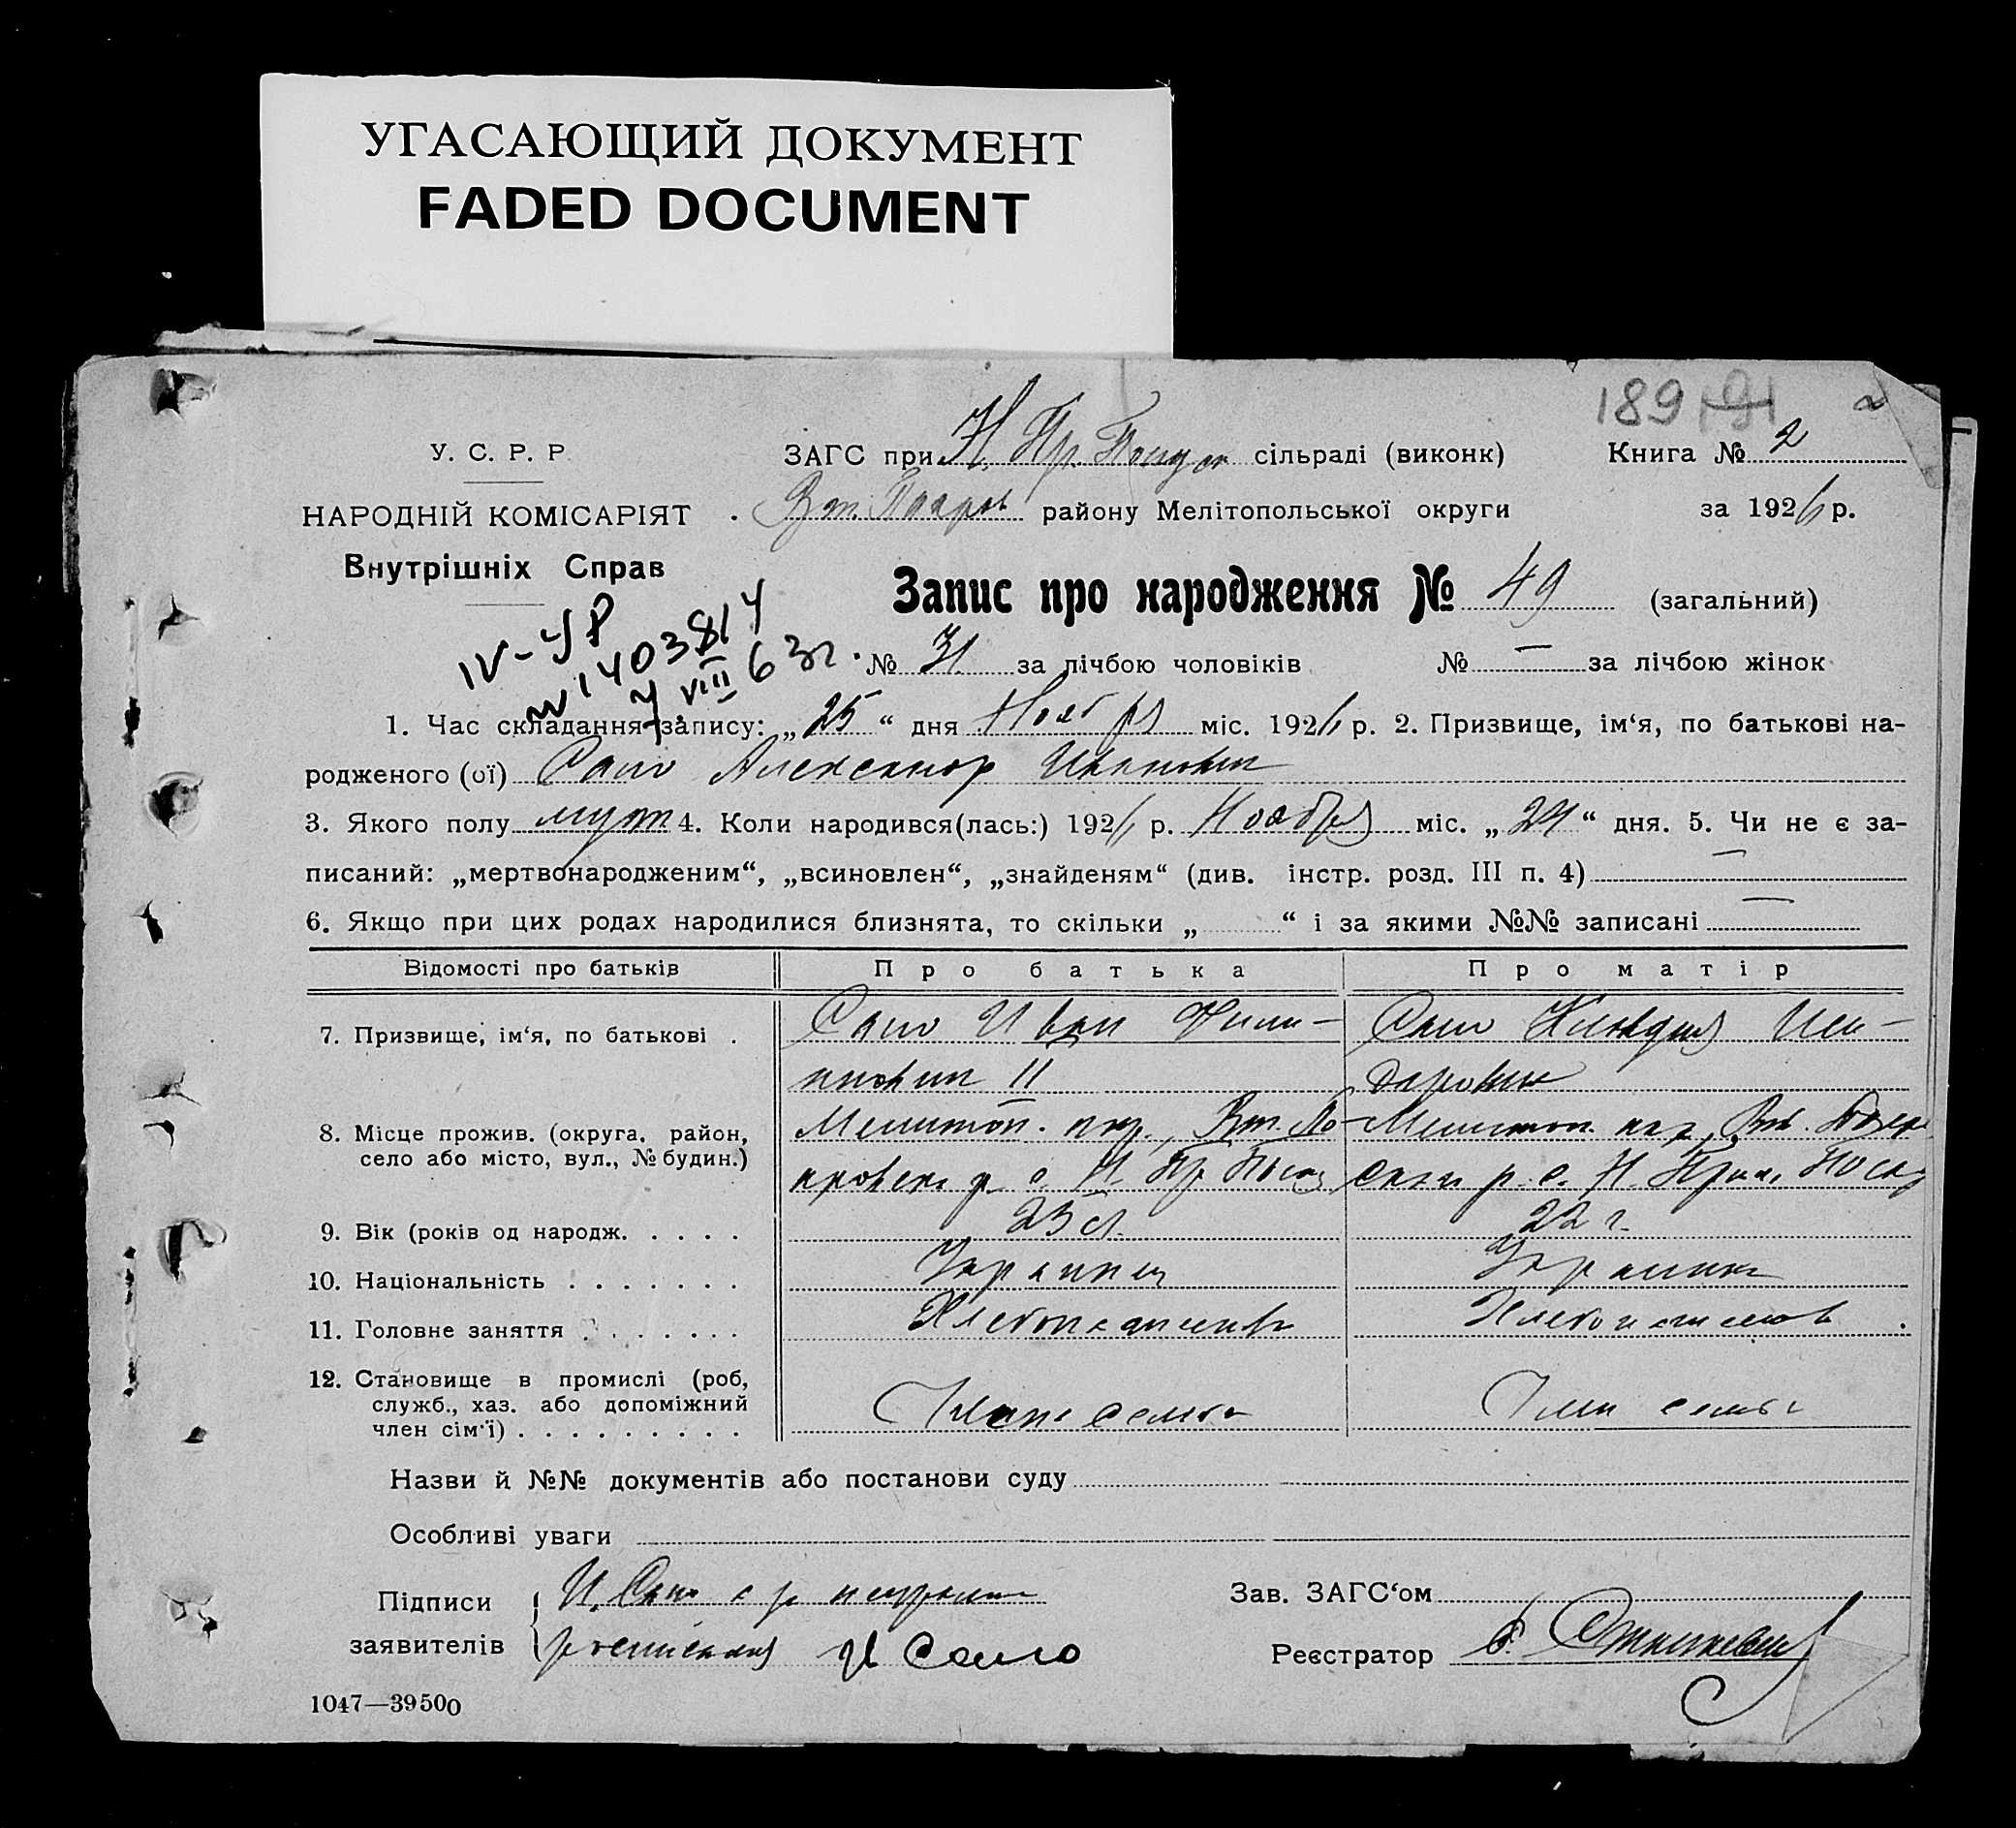 УГАСАЮЩИЙ ДОКУМЕНТ
FADED DOCUMENT
189
У. С. Р. Р.
ЗАГС при Н. Пр. Посад сільраді (виконк) Книга № 2
НАРОДНІЙ КОМІСАРІЯТ
району Мелітопольської округи за 1926 р.
Внутрішніх Справ
Запис про народження № 49 (загальний)
IV-УР
№ 1403814
7 VIII 63г.
№ 31 за лічбою чоловіків № — за лічбою жінок
1. Час складання запису: „25“ дня Ноября міс. 1926 р. 2. Призвище, ім‘я, по батькові на-
родженого (ої) Сало Александр Иванович
3. Якого полу муж 4. Коли народився(лась:) 1926 р. Ноября міс. „24“ дня. 5. Чи не є за-
писаний: „мертвонародженим“, „всиновлен“, „знайденям“ (див. інстр. розд. III п. 4) —
6. Якщо при цих родах народилися близнята, то скільки „ “ і за якими №№ записані —
Відомості про батьків Про батька Про матір
7. Призвище, ім‘я, по батькові . Сало Иван Фили- Сало Клавдия Иси-
ппович II доровна
8. Місце прожив. (округа, район, Мелитоп. окр., Вт. По- Мелитоп. окр.,
село або місто, вул., № будин.) кровск. р. с. Н. Пр. Посад ской р. с. Н. Посад
9. Вік (років од народж. . . . . 23 л. 22 г.
10. Національність . . . . . . . Украинец Украинка
11. Головне заняття . . . . . . . Хлебопашество Хлебопашество
12. Становище в промислі (роб,
служб., хаз. або допоміжний Член семьи Член семьи
член сім‘ї) . . . . . . . . .
Назви й №№ документів або постанови суду
Особливі уваги
Підписи И. Сало Зав. ЗАГС‘ом
заявителів И Сало Реєстратор
1047—39500